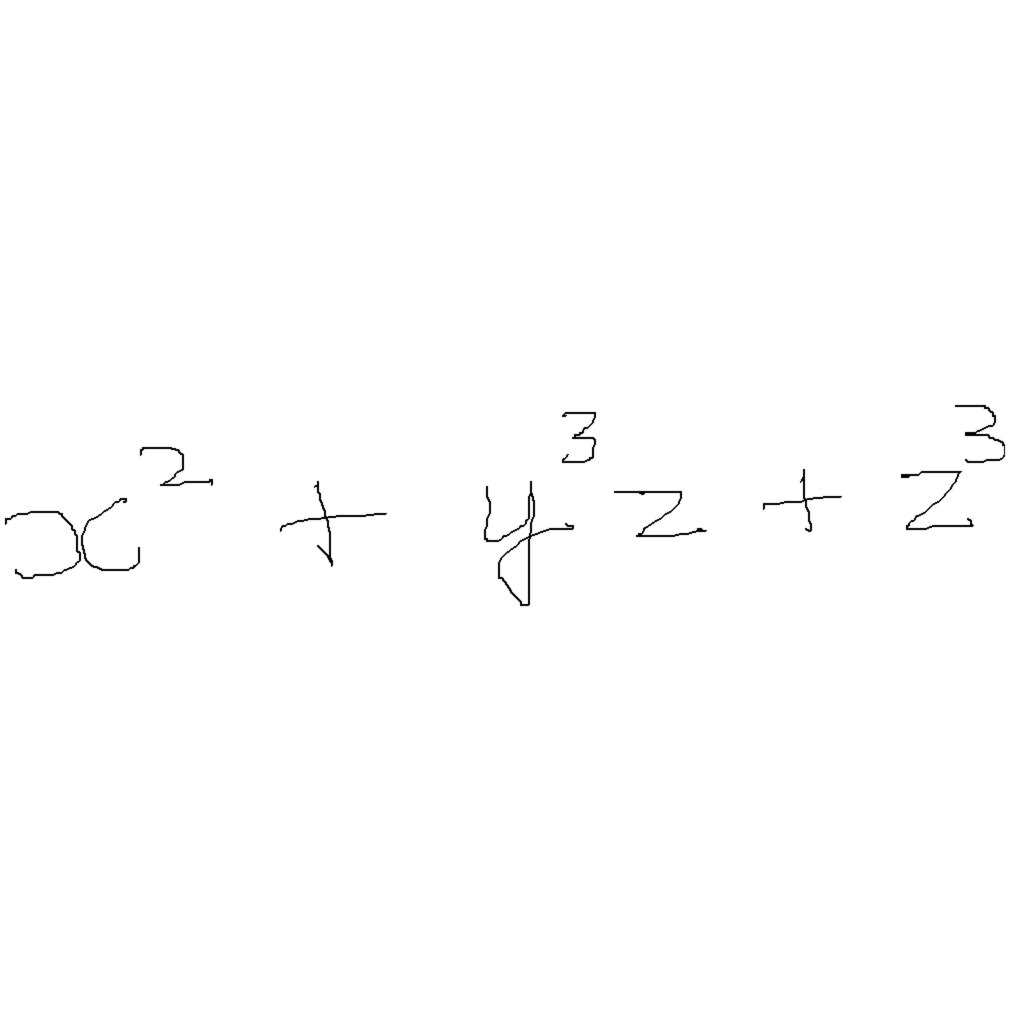 x² + y³z + z³